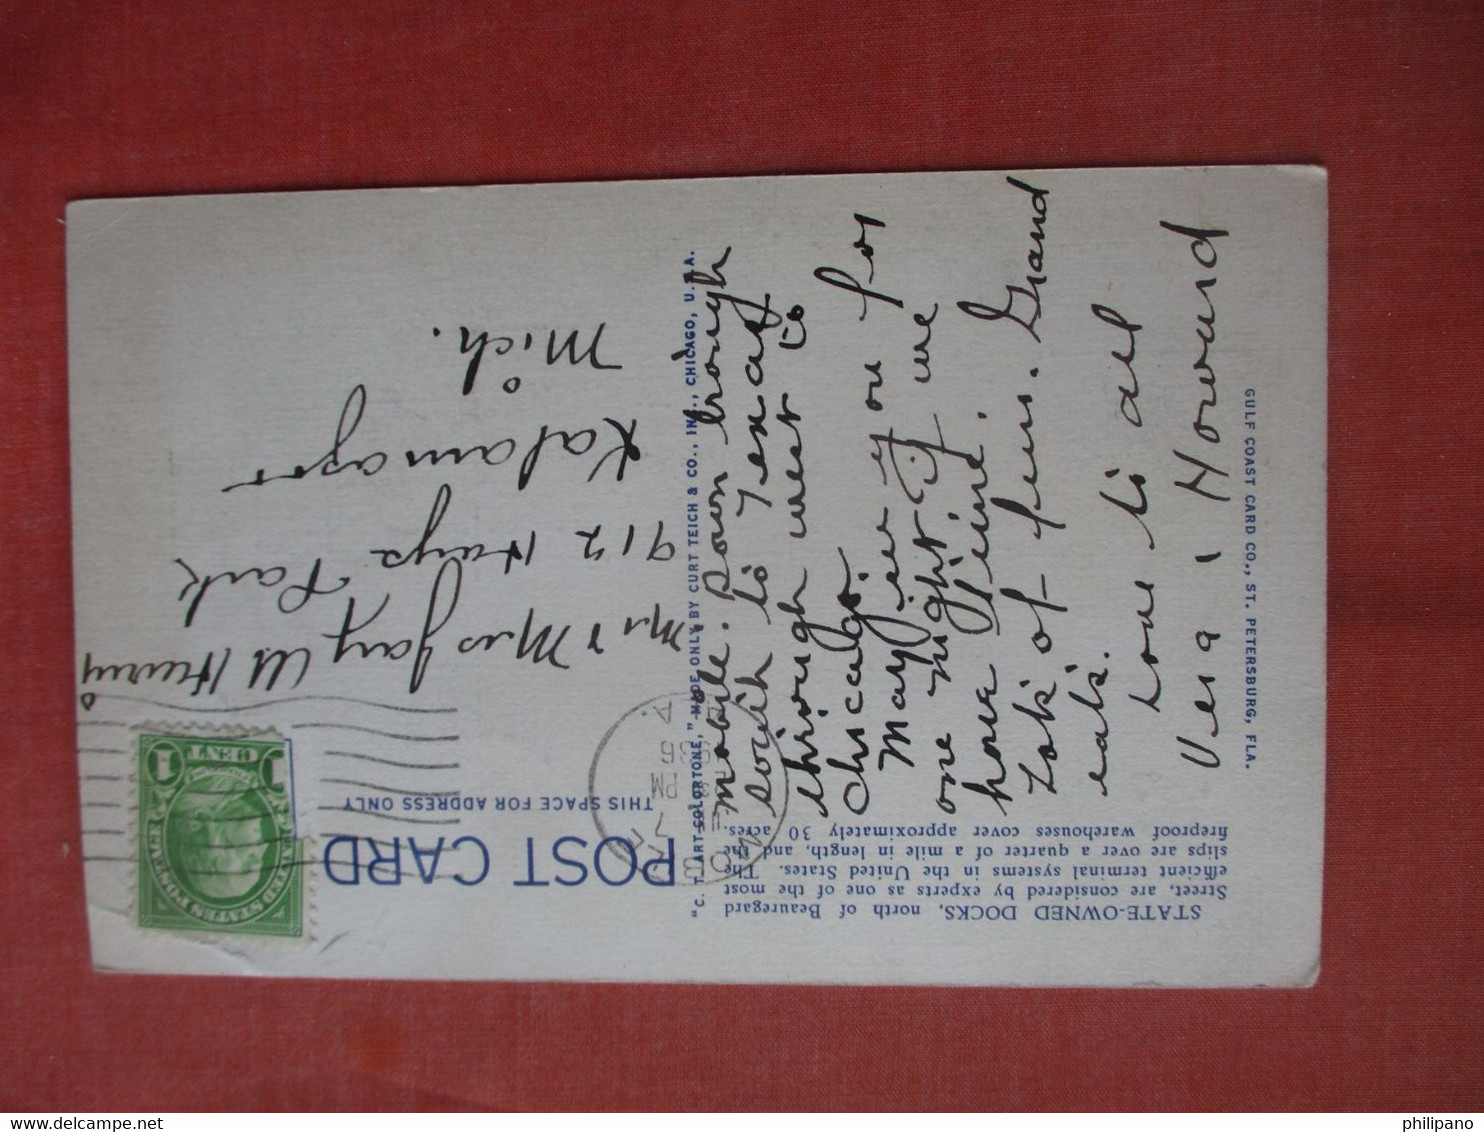 STATE-OWNED DOCKS, north of Beauregard
Street, are considered by experts as one of the most
efficient terminal systems in the United States. The
slips are over a quarter of a mile in length, and the
fireproof warehouses cover approximately 30 acres.
Mobile. Down through
south to Texas
through west to
Chicago.
May see you for
one night if we
have time.
Lots of fun. Grand
eats.
Love to all
Vera & Howard
GULF COAST CARD CO., ST. PETERSBURG, FLA.
"C. T. ART-COLORTONE," MADE ONLY BY CURT TEICH & CO., INC., CHICAGO, U.S.A.
POST CARD
THIS SPACE FOR ADDRESS ONLY
MOBILE
FEB
7
PM
1936
ALA.
UNITED STATES POSTAGE
1 CENT 1
Mr & Mrs Jay W
912 Hays Park
Kalamazoo
Mich.
philipano
delcampe.net